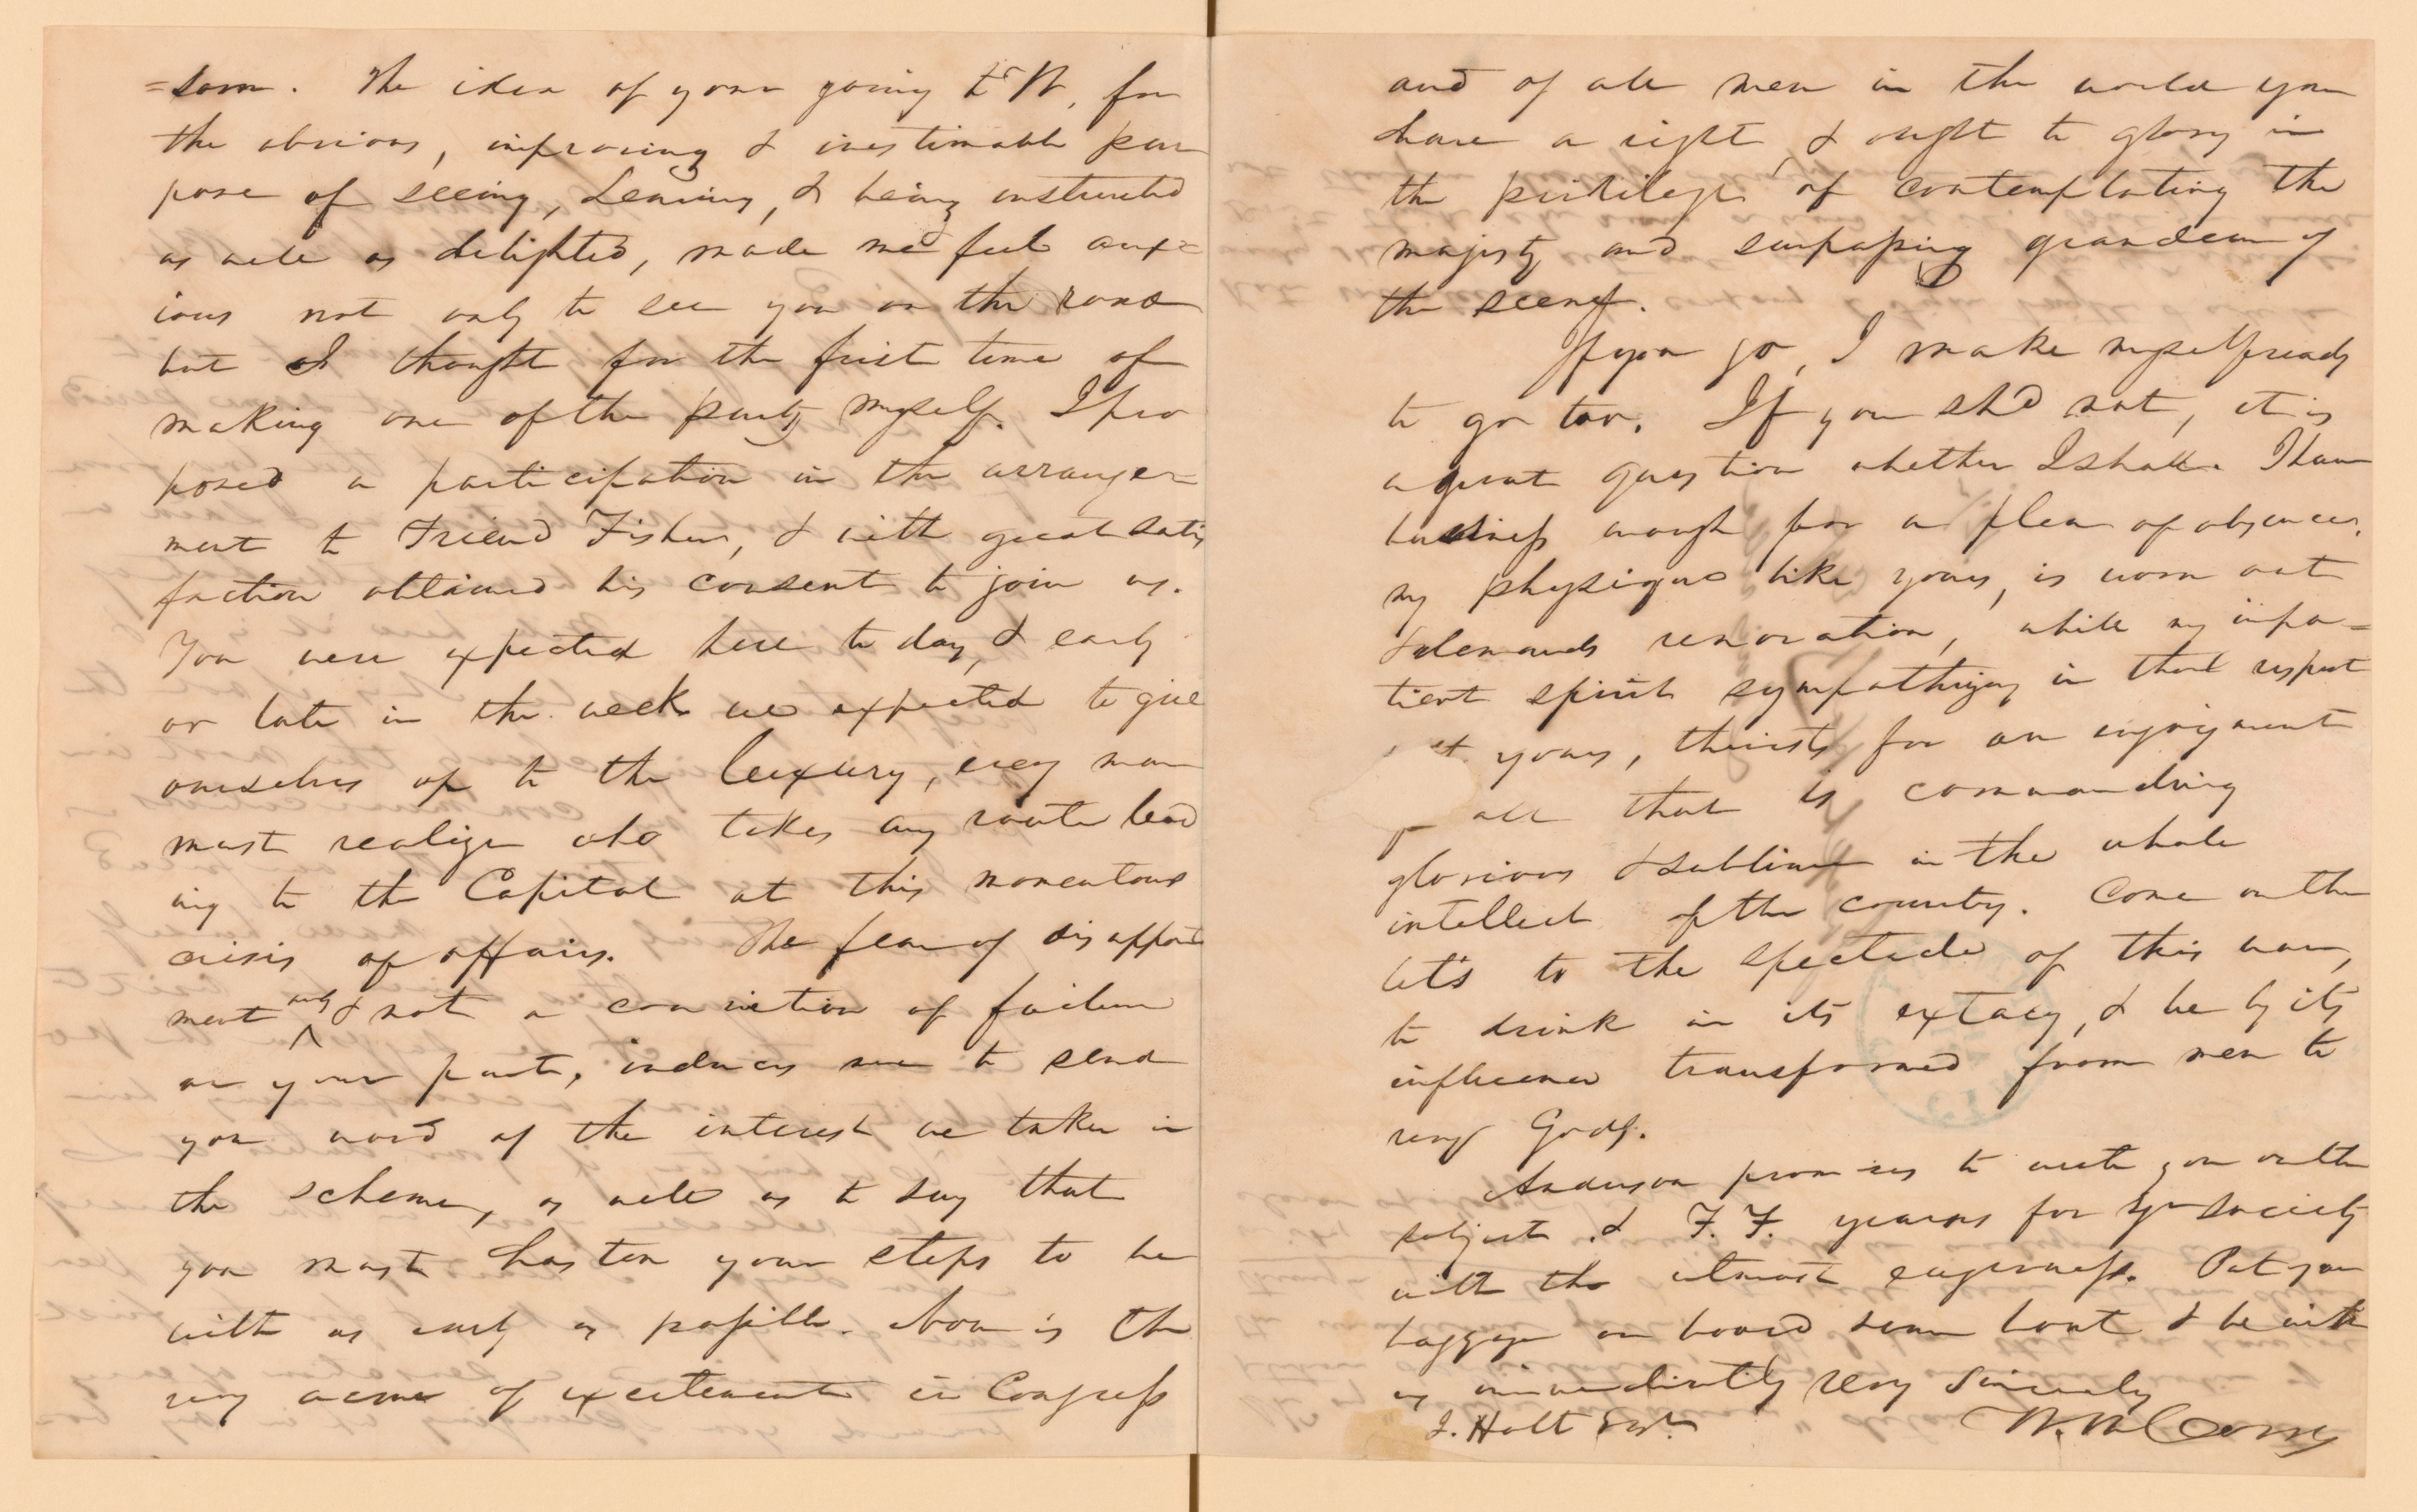 =som. The idea of your going to W, for
the obvious, improving & inestimable pur
pose of seeing, hearing, & being instructed
as well as delighted, made me feel anx=
ious not only to see you on the road
but I thought for the first time of
making one of the party myself. I pro
posed a participation in the arrange
ment to Friend Fisher, & with great satis
faction obtained his consent to join us.
You were expected here to day, & early
or late in the week we expected to give
ourselves up to the luxury, every man
must realize who takes any route lead
ing to the Capital at this momentous
crisis of affairs. The fear of disappoint
ment only & not a conviction of failure
on your part, induces me to send
you word of the interest we take in
the scheme, as well as to say that
you must hasten your steps to be
with us early as possible. Now is the
very acme of excitement in Congress
and of all men in the world you
have a right, & ought to glory in
the privilege of contemplating the
majesty and surpassing grandeur of
the scene.
If you go, I make myself ready
to go too. If you shd not, it is
a great question whether I shall. I have
business enough for a plea of absence,
my physique like yours, is worn out
& demands renovation, while my impa=
tient spirit sympathizing in that respect
yours, thirsts for an enjoyment
all that is commanding
glorious & sublime in the whole
intellect of the country. Come on then
let's to the spectacle of this war,
to drink in its extacy, & be by its
influence transformed from men to
very Gods.
Anderson promises to write you on the
subject & F. F. yearns for yr society
with the utmost eagerness. Put your
baggage on board some boat & be with
us immediately very Sincerely
J. Holt Esqr.